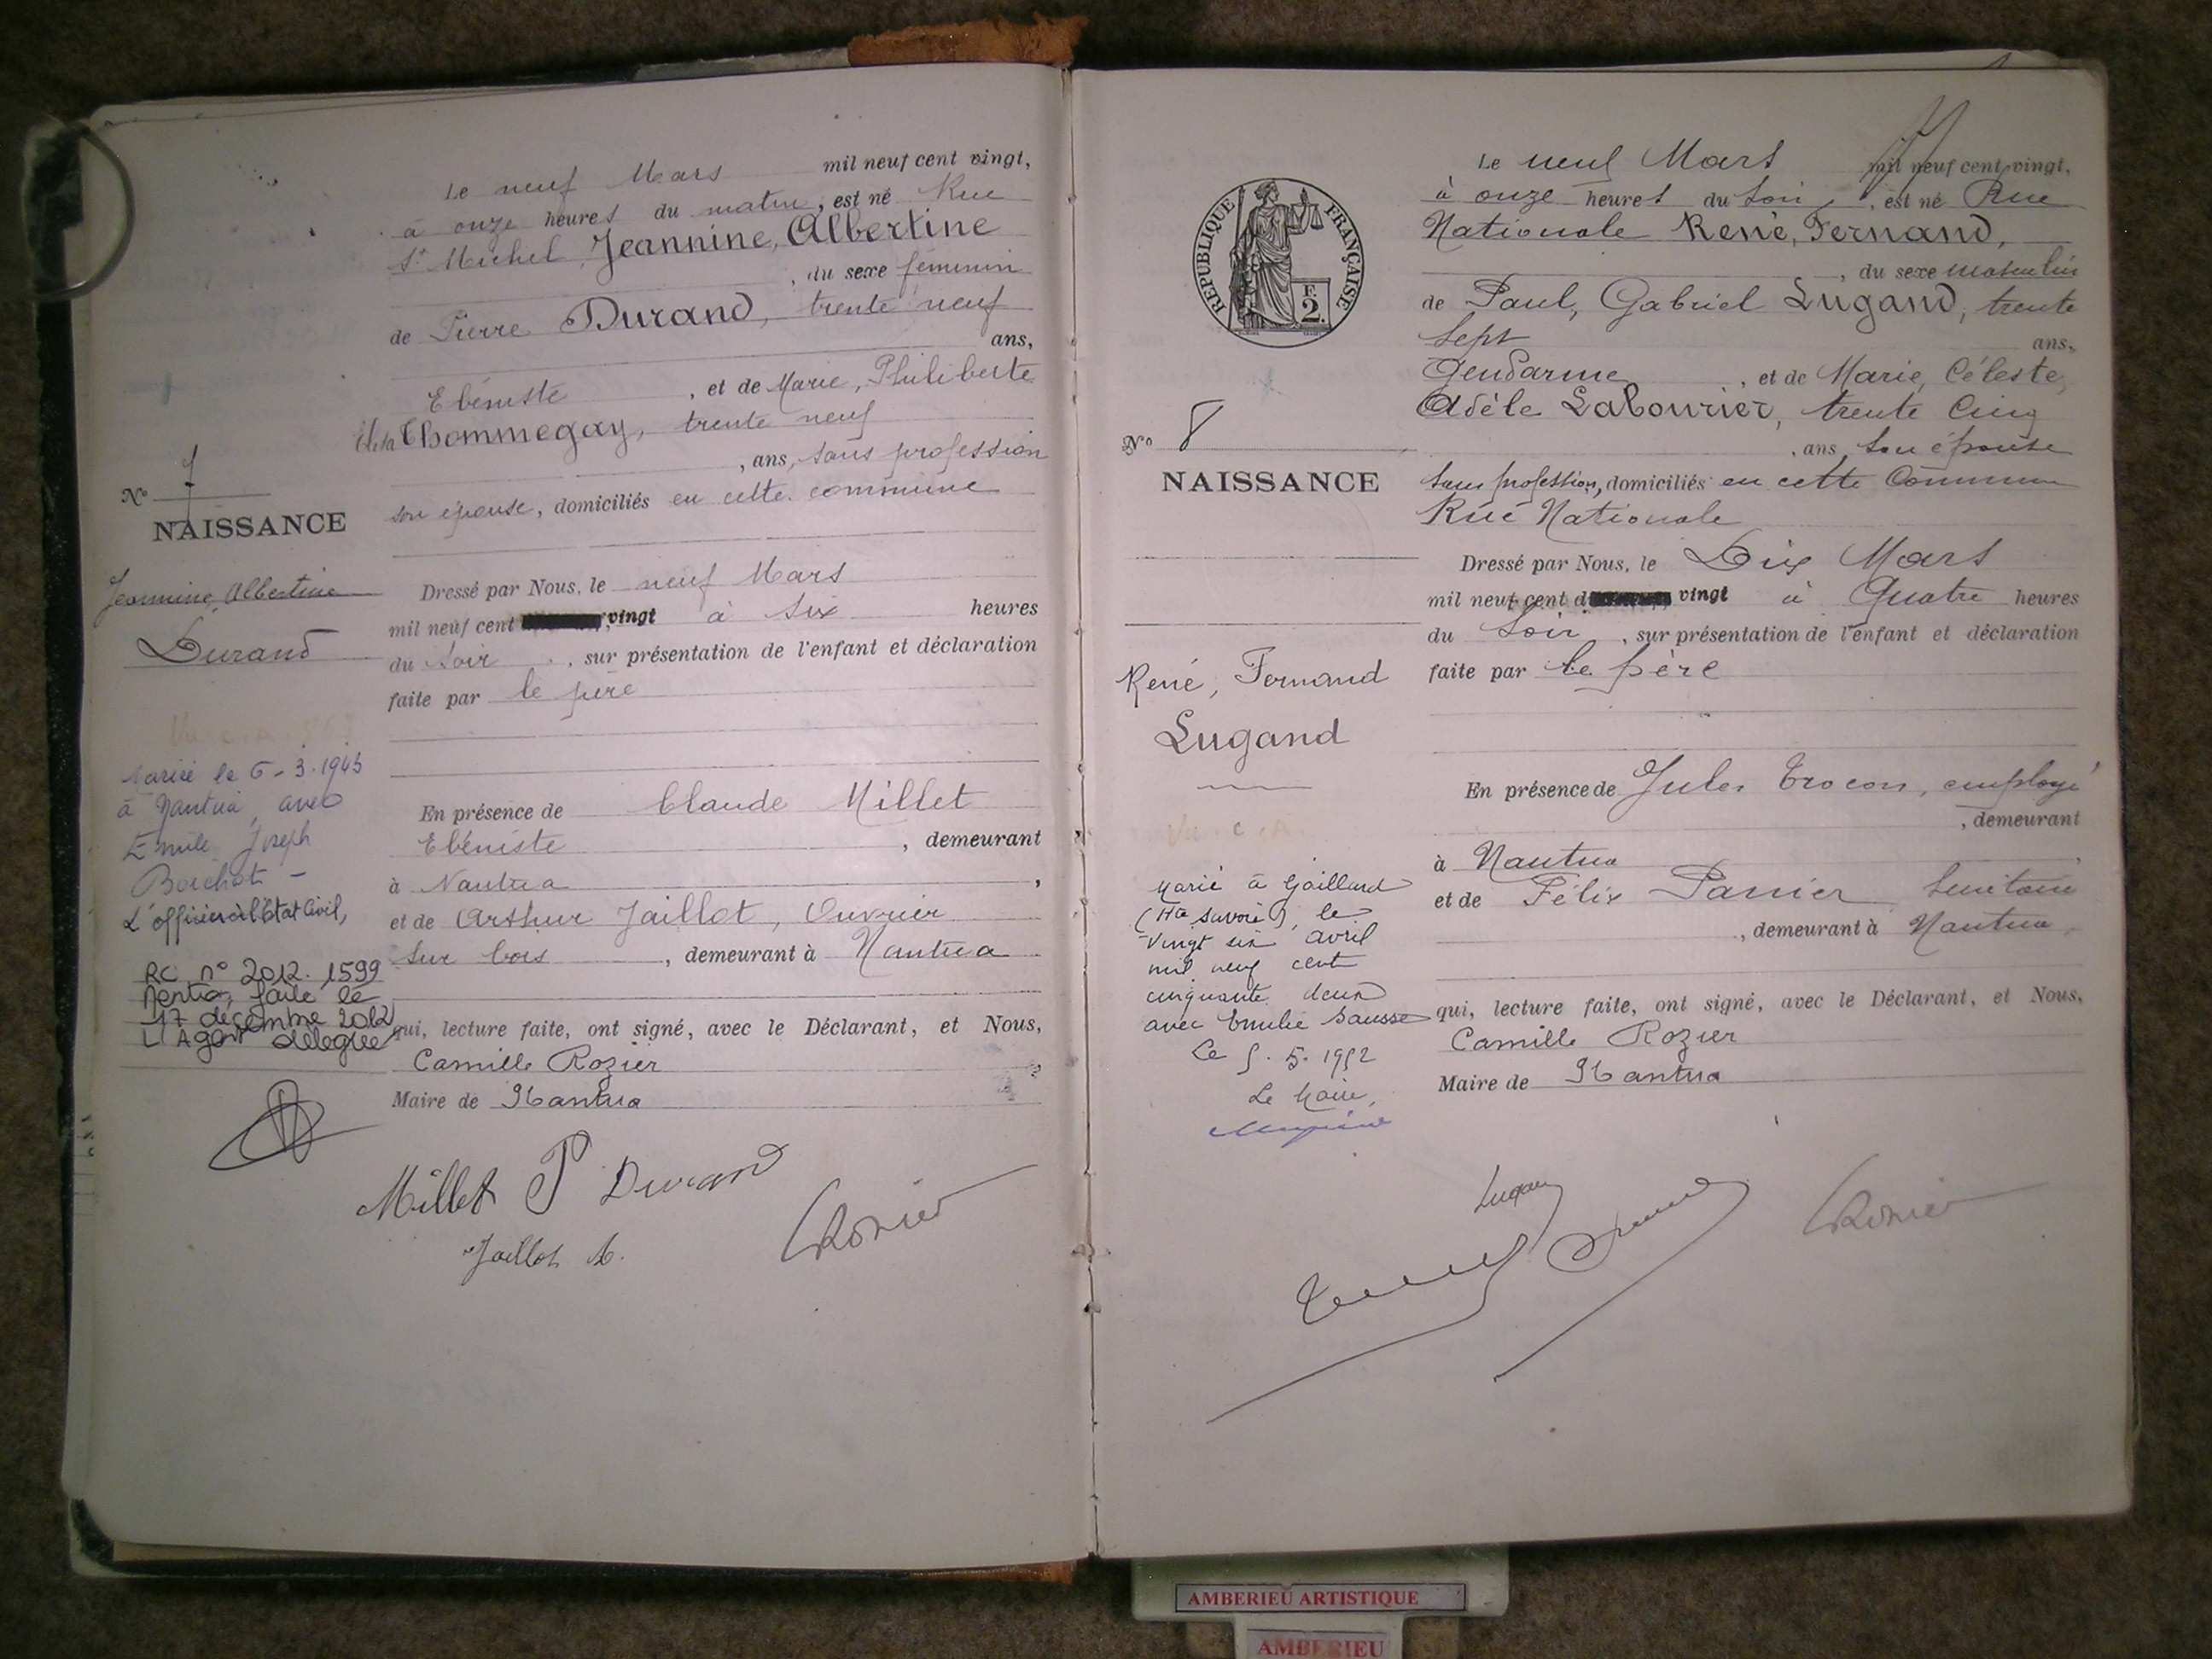 Le neuf Mars mil neuf cent vingt,
à onze heures du matin, est né Rue
St Michel, Jeannine, Albertine
, du sexe féminin
de Pierre Durand, trente neuf
ans,
Ebéniste, et de Marie, Philiberte
Thommegay, trente neuf
, ans, sans profession
son épouse, domiciliés en cette commune
No 7
NAISSANCE
Jeannine, Albertine
Durand
Dressé par Nous, le neuf Mars
mil neuf cent vingt à six heures
du soir, sur présentation de l'enfant et déclaration
faite par le père
Mariée le 6-3-1945
à Nantua avec
Emile Joseph
Boichot -
L'officier de l'Etat Civil,
RC n° 2012. 1599
Mention faite le
17 décembre 2012
L'Agent délégué
En présence de Claude Millet
Ebéniste, demeurant
à Nantua,
et de Arthur Jaillot, Ouvrier
sur bois, demeurant à Nantua
qui, lecture faite, ont signé, avec le Déclarant, et Nous,
Camille Rozier
Maire de Nantua
Millet P Durand
Jaillot A.
CRozier
Le neuf Mars mil neuf cent vingt,
à onze heures du soir, est né Rue
Nationale René, Fernand,
, du sexe masculin
de Paul, Gabriel Lugand, trente
sept ans,
Gendarme, et de Marie, Céleste,
Adèle Labourier, trente cinq
, ans, son épouse
sans profession, domiciliés en cette Commune
Rue Nationale
RÉPUBLIQUE FRANÇAISE
F.
2.
No 8
NAISSANCE
René, Fernand
Lugand
Dressé par Nous, le Dix Mars
mil neuf cent vingt à Quatre heures
du Soir, sur présentation de l'enfant et déclaration
faite par le père
Marié à Gaillard
(Hte Savoie), le
vingt six avril
mil neuf cent
cinquante deux
avec Emilie Sausse
Le 5. 5. 1952
Le Maire,
En présence de Jules Trocon, employé
, demeurant
à Nantua
et de Félix Panier
, demeurant à Nantua,
qui, lecture faite, ont signé, avec le Déclarant, et Nous,
Camille Rozier
Maire de Nantua
Lugand
CRozier
AMBERIEU ARTISTIQUE
AMBERIEU